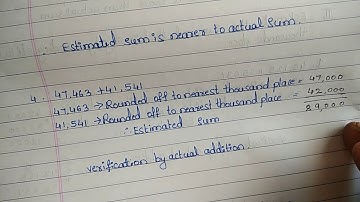 ∴ Estimated sum is nearer to actual sum.
4. 47,463 + 41,541
47,463 → Rounded off to nearest thousand place = 47,000
41,541 → Rounded off to nearest thousand place = 42,000
∴ Estimated sum 89,000
verification by actual addition.